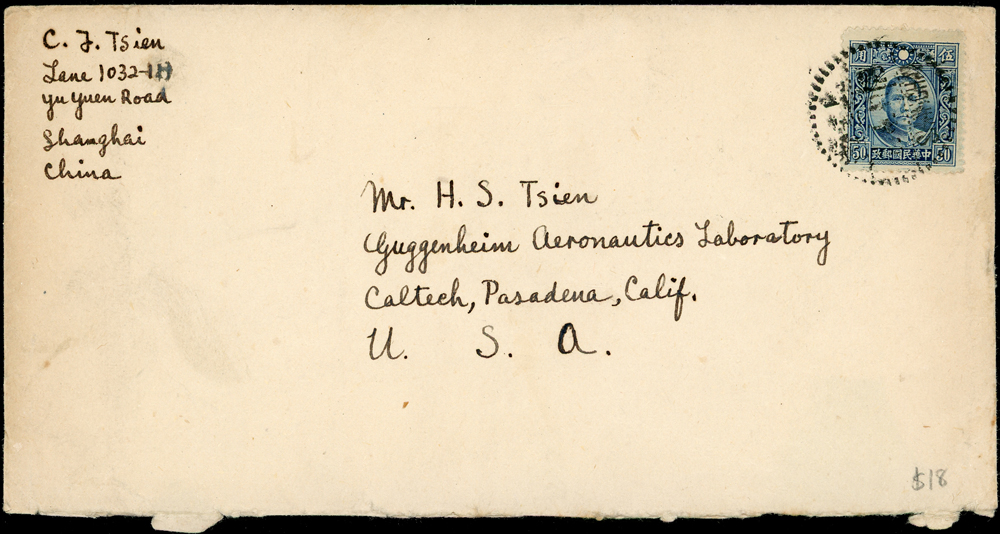 C. F. Tsien
Lane 1032-1H
Yu Yuen Road
Shanghai
China
角 伍
50 政郵國民華中 50
SHANGHAI
Mr. H. S. Tsien
Guggenheim Aeronautics Laboratory
Caltech, Pasadena, Calif.
U. S. A.
$18